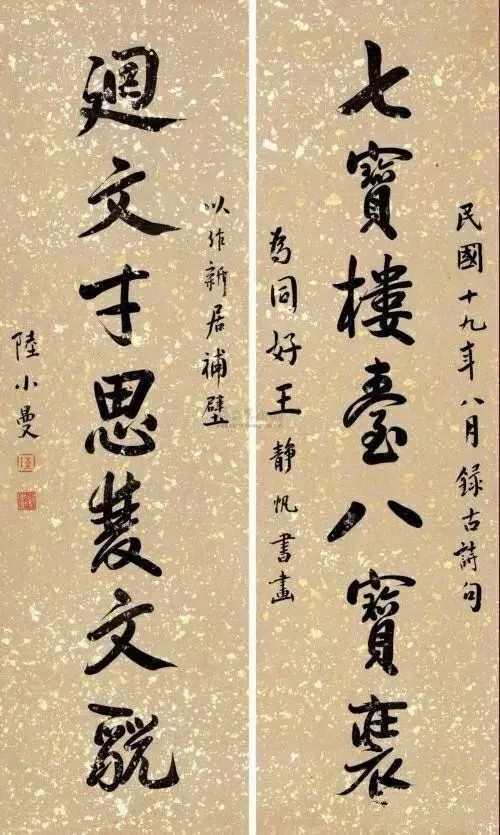 民國十九年八月錄古詩句
七寶樓臺八寶
為同好王靜帆書畫
以作新居補壁
廻文才思文
陸小曼